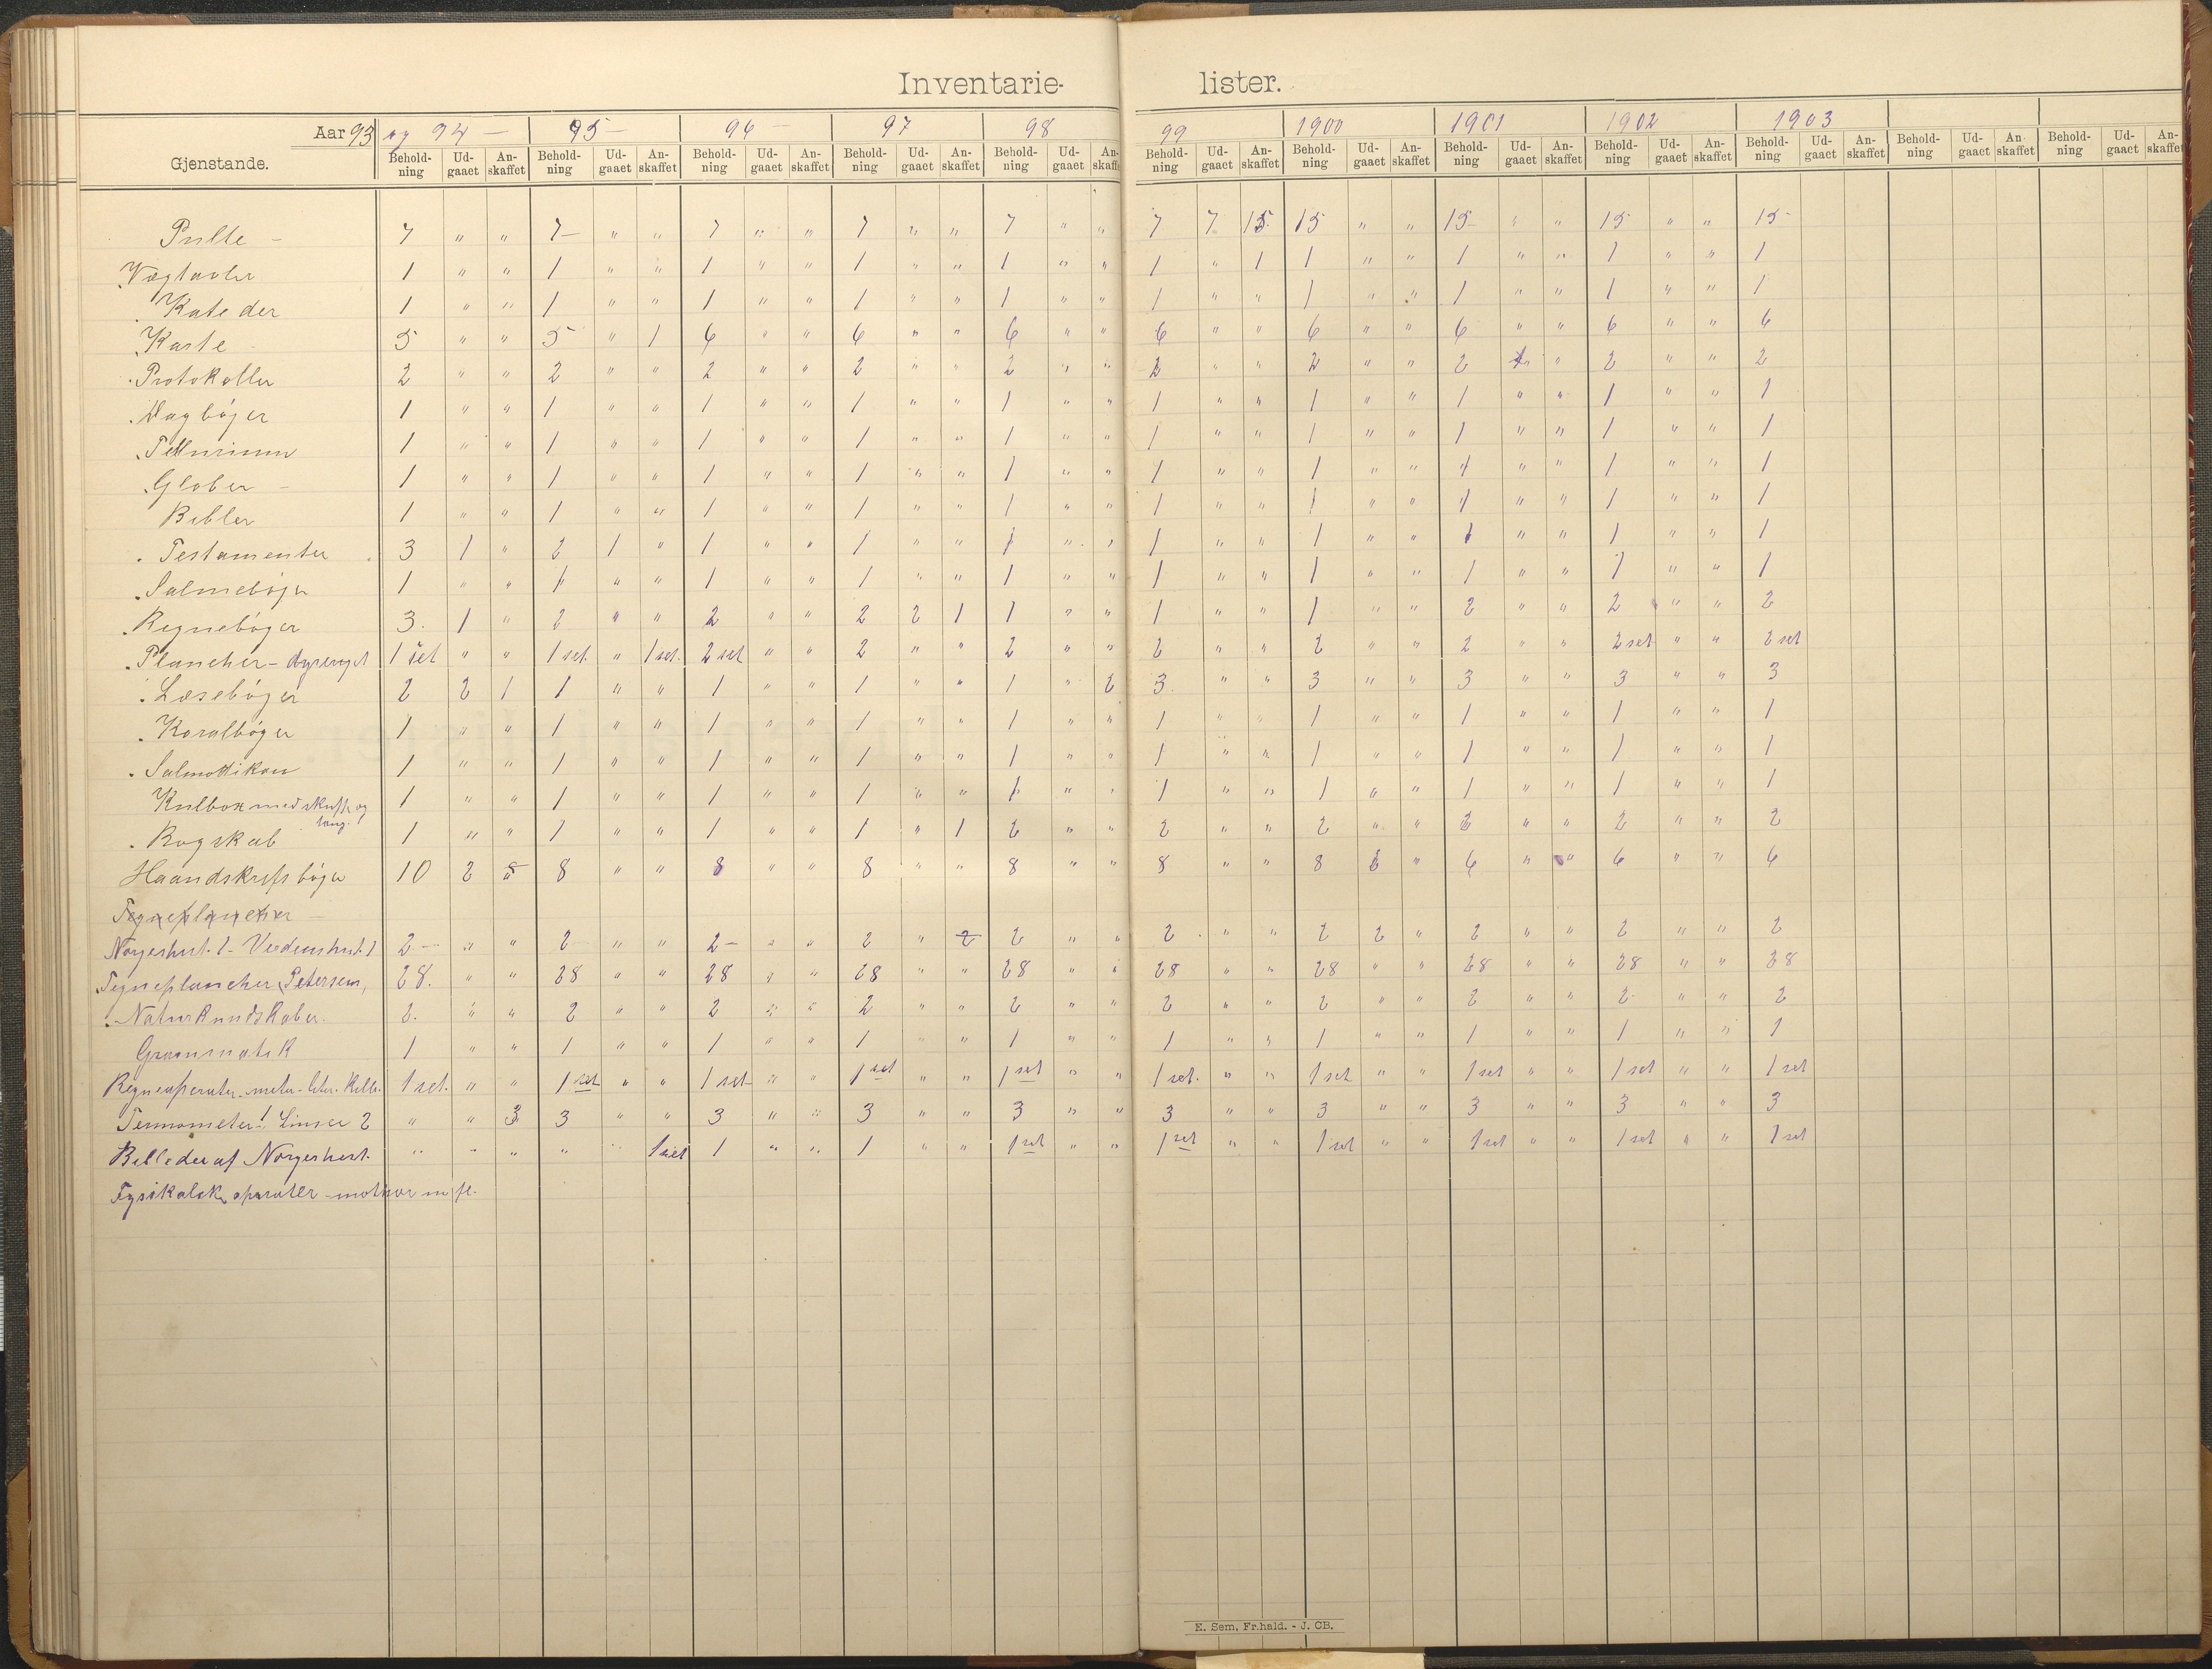 Inventarie- lister.
Aar 93 og 94 — 95 — 96 — 97 98 99 1900 1901 1902 1903
Gjenstande. Behold-ning Ud-gaaet An-skaffet Behold-ning Ud-gaaet An-skaffet Behold-ning Ud-gaaet An-skaffet Behold-ning Ud-gaaet An-skaffet Behold-ning Ud-gaaet An-skaffet Behold-ning Ud-gaaet An-skaffet Behold-ning Ud-gaaet An-skaffet Behold-ning Ud-gaaet An-skaffet Behold-ning Ud-gaaet An-skaffet Behold-ning Ud-gaaet An-skaffet Behold-ning Ud-gaaet An-skaffet Behold-ning Ud-gaaet An-skaffet
Pulte — 7 " " 7 — " " 7 " " 7 " " 7 " " 7 7 15 15 " " 15 " " 15 " " 15
Vægtavler 1 " " 1 " " 1 " " 1 " " 1 " " 1 " 1 1 " " 1 " " 1 " " 1
Kateder 1 " " 1 " " 1 " " 1 " " 1 " " 1 " " 1 " " 1 " " 1 " " 1
Karte 5 " " 5 " 1 6 " " 6 " " 6 " " 6 " " 6 " " 6 " " 6 " " 6
Protokoller 2 " " 2 " " 2 " " 2 " " 2 " " 2 " " 2 " " 2 " 2 " " 2
Dagbøger 1 " " 1 " " 1 " " 1 " " 1 " " 1 " " 1 " " 1 " " 1 " " 1
Tellurium 1 " " 1 " " 1 " " 1 " " 1 " " 1 " " 1 " " 1 " " 1 " " 1
Glober — 1 " " 1 " " 1 " " 1 " " 1 " " 1 " " 1 " " 1 " " 1 " " 1
Bibler 1 " " 1 " " 1 " " 1 " " 1 " " 1 " " 1 " " 1 " " 1 " " 1
Testamenter 3 1 " 2 1 " 1 " " 1 " " 1 " " 1 " " 1 " " 1 " " 1 " " 1
Salmebøger 1 " " 1 " " 1 " " 1 " " 1 " " 1 " " 1 " " 1 " " 1 " " 1
Regnebøger 3. 1 " 2 " " 2 " " 2 2 1 1 " " 1 " " 1 " " 2 " " 2 " " 2
Plancher - dyreryet 1 set " " 1 set. " 1 set. 2 set " " 2 " " 2 " " 2 " " 2 " " 2 " " 2 set " " 2 set
Læsebøger 2 2 1 1 " " 1 " " 1 " " 1 " 2 3. " " 3 " " 3 " " 3 " " 3
Koralbøger 1 " " 1 " " 1 " " 1 " " 1 " " 1 " " 1 " " 1 " " 1 " " 1
Salmodikon 1 " " 1 " " 1 " " 1 " " 1 " " 1 " " 1 " " 1 " " 1 " " 1
Kulbox med skuffe og 1 " " 1 " " 1 " " 1 " " 1 " " 1 " " 1 " " 1 " " 1 " " 1
tang.
Bogskab 1 " " 1 " " 1 " " 1 " 1 2 " " 2 " " 2 " " 2 " " 2 " " 2
Haandskrifsbøger 10 2 " 8 " " 8 " " 8 " " 8 " " 8 " " 8 " 6 " " 6 " " 6
Tegneplancher —
Norgeshist. 1 - Verdenshist. 1 2 — " " 2 " " 2 — " " 2 " 2 2 " " 2 " " 2 2 " 2 " " 2 " " 2
Tegneplancher, Petersens, 28. " " 28 " " 28 " " 28 " " 28 " " 28 " " 28 " " 28 " " 28 " " 28
Naturkundskaber. 2. " " 2 " " 2 " " 2 " " 2 " " 2 " " 2 " " 2 " " 2 " " 2
Grammatik 1 " " 1 " " 1 " " 1 " " 1 " " 1 " " 1 " " 1 " " 1 " " 1
Regneaperater - meter - liter - 1 set. " " 1 set " " 1 set " " 1 set " " 1 set " " 1 set. " " 1 set " " 1 set " " 1 set " " 1 set
Termometer 1. Linser 2 " " 3 3 " " 3 " " 3 " " 3 " " 3 " " 3 " " 3 " " 3 " " 3
Billeder af Norgeshist. " " " " " 1 set 1 " " 1 " " 1 set " " 1 set " " 1 set " " 1 set " " 1 set " " 1 set
Fysikalske aperater - m fl.
E. Sem, Fr.hald. - J. CB.